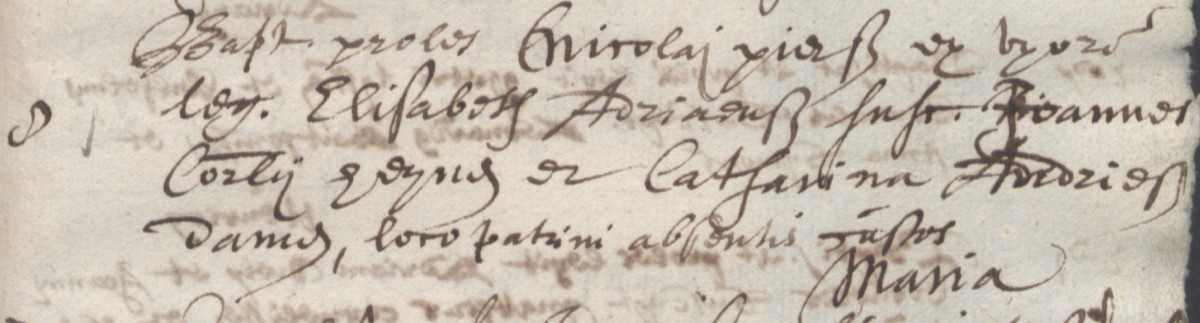 Bapt. proles Nicolai pierss ex uxorē
8 leg. Elisabeth Adriaenss susc. Joannes
Corlij et Catharina Andriess
Danus, loco patrini absentis custos
Maria